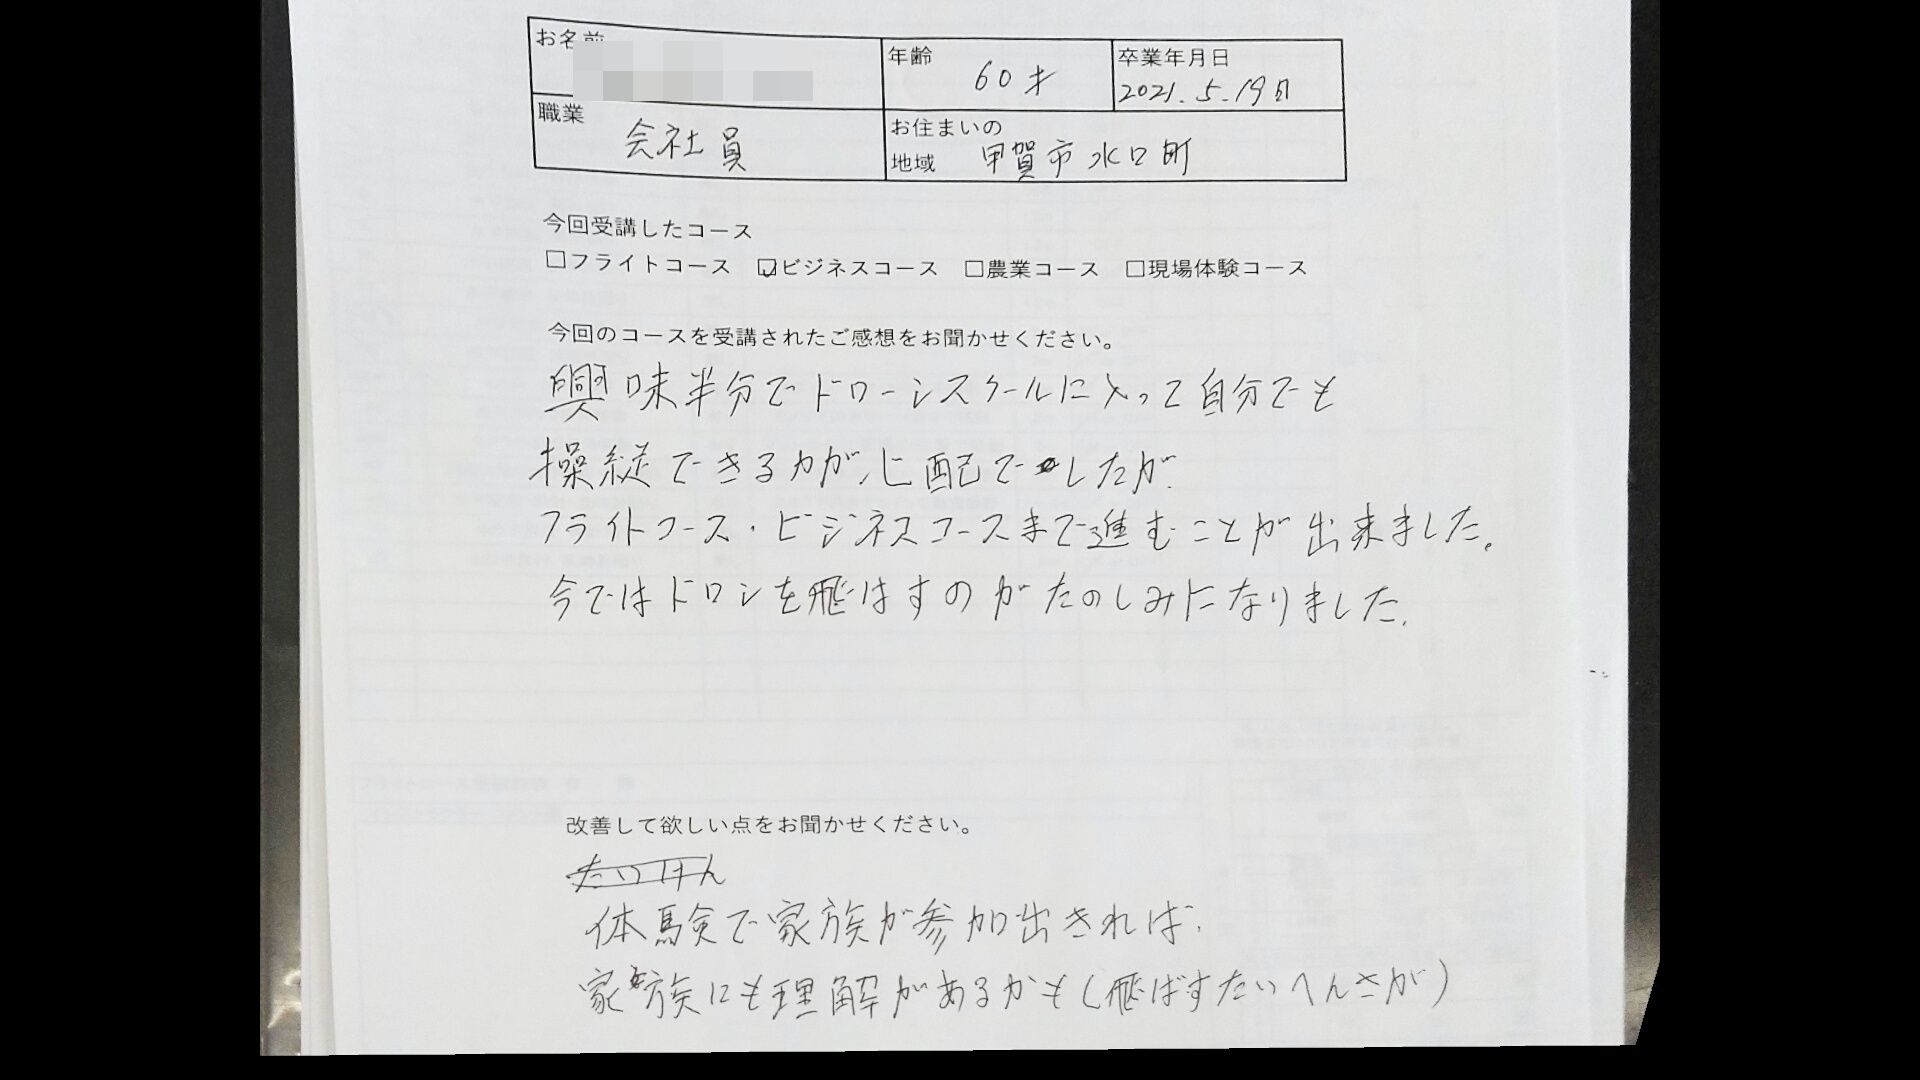 お名前
年齢 60才
卒業年月日
2021.5.19日
職業 会社員
お住まいの
地域 甲賀市水口町
今回受講したコース
□フライトコース ☑ビジネスコース □農業コース □現場体験コース
今回のコースを受講されたご感想をお聞かせください。
興味半分でドローンスクールに入って自分でも
操縦できるカが心配でしたが、
フライトコース・ビジネスコースまで進むことが出来ました。
今ではドロンを飛ばすのがたのしみになりました。
改善して欲しい点をお聞かせください。
たいけん
体験で家族が参加出きれば、
家族にも理解があるかも(飛ばすたいへんさが)